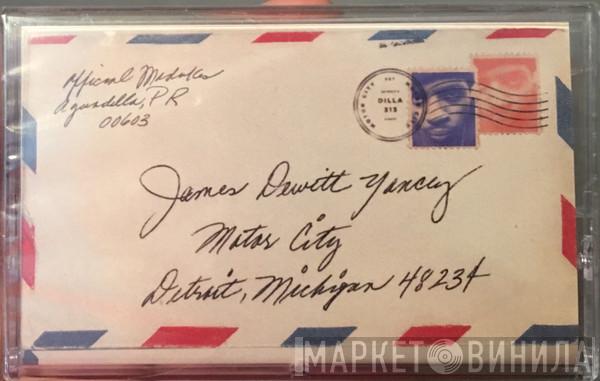 Official Medakes
Aguadilla, PR
00603
MOTOR CITY
DILLA
313
James Dewitt Yancey
Motor City
Detroit, Michigan 48234
МАРКЕТ ВИНИЛА